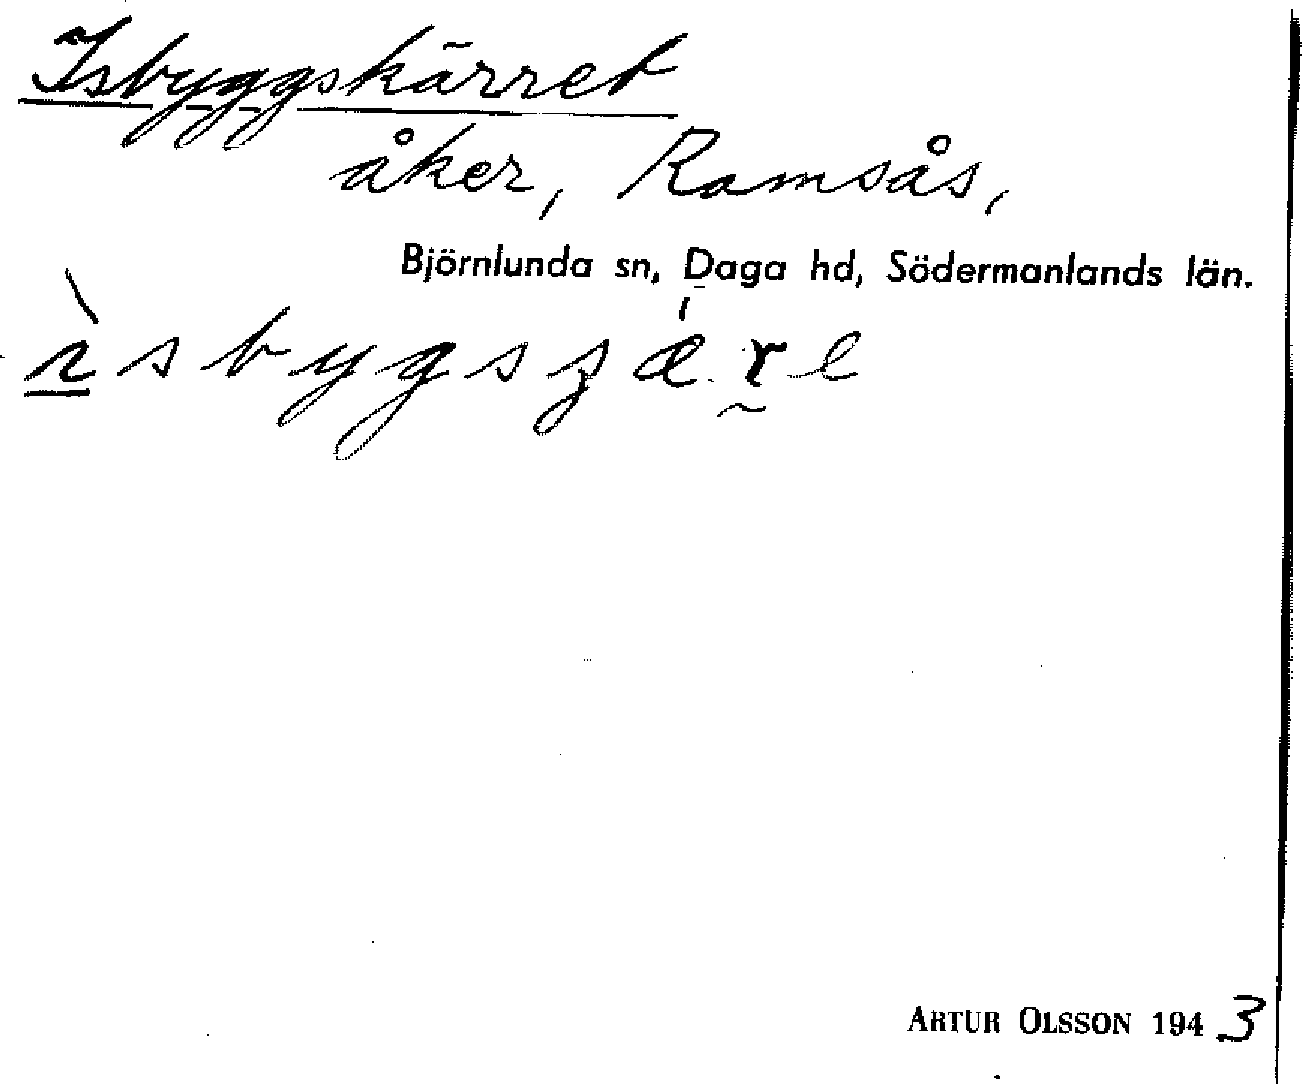 Isbyggskärret
åker, Ramsås,
Björnlunda sn, Daga hd, Södermanlands län.
ARTUR OLSSON 1943